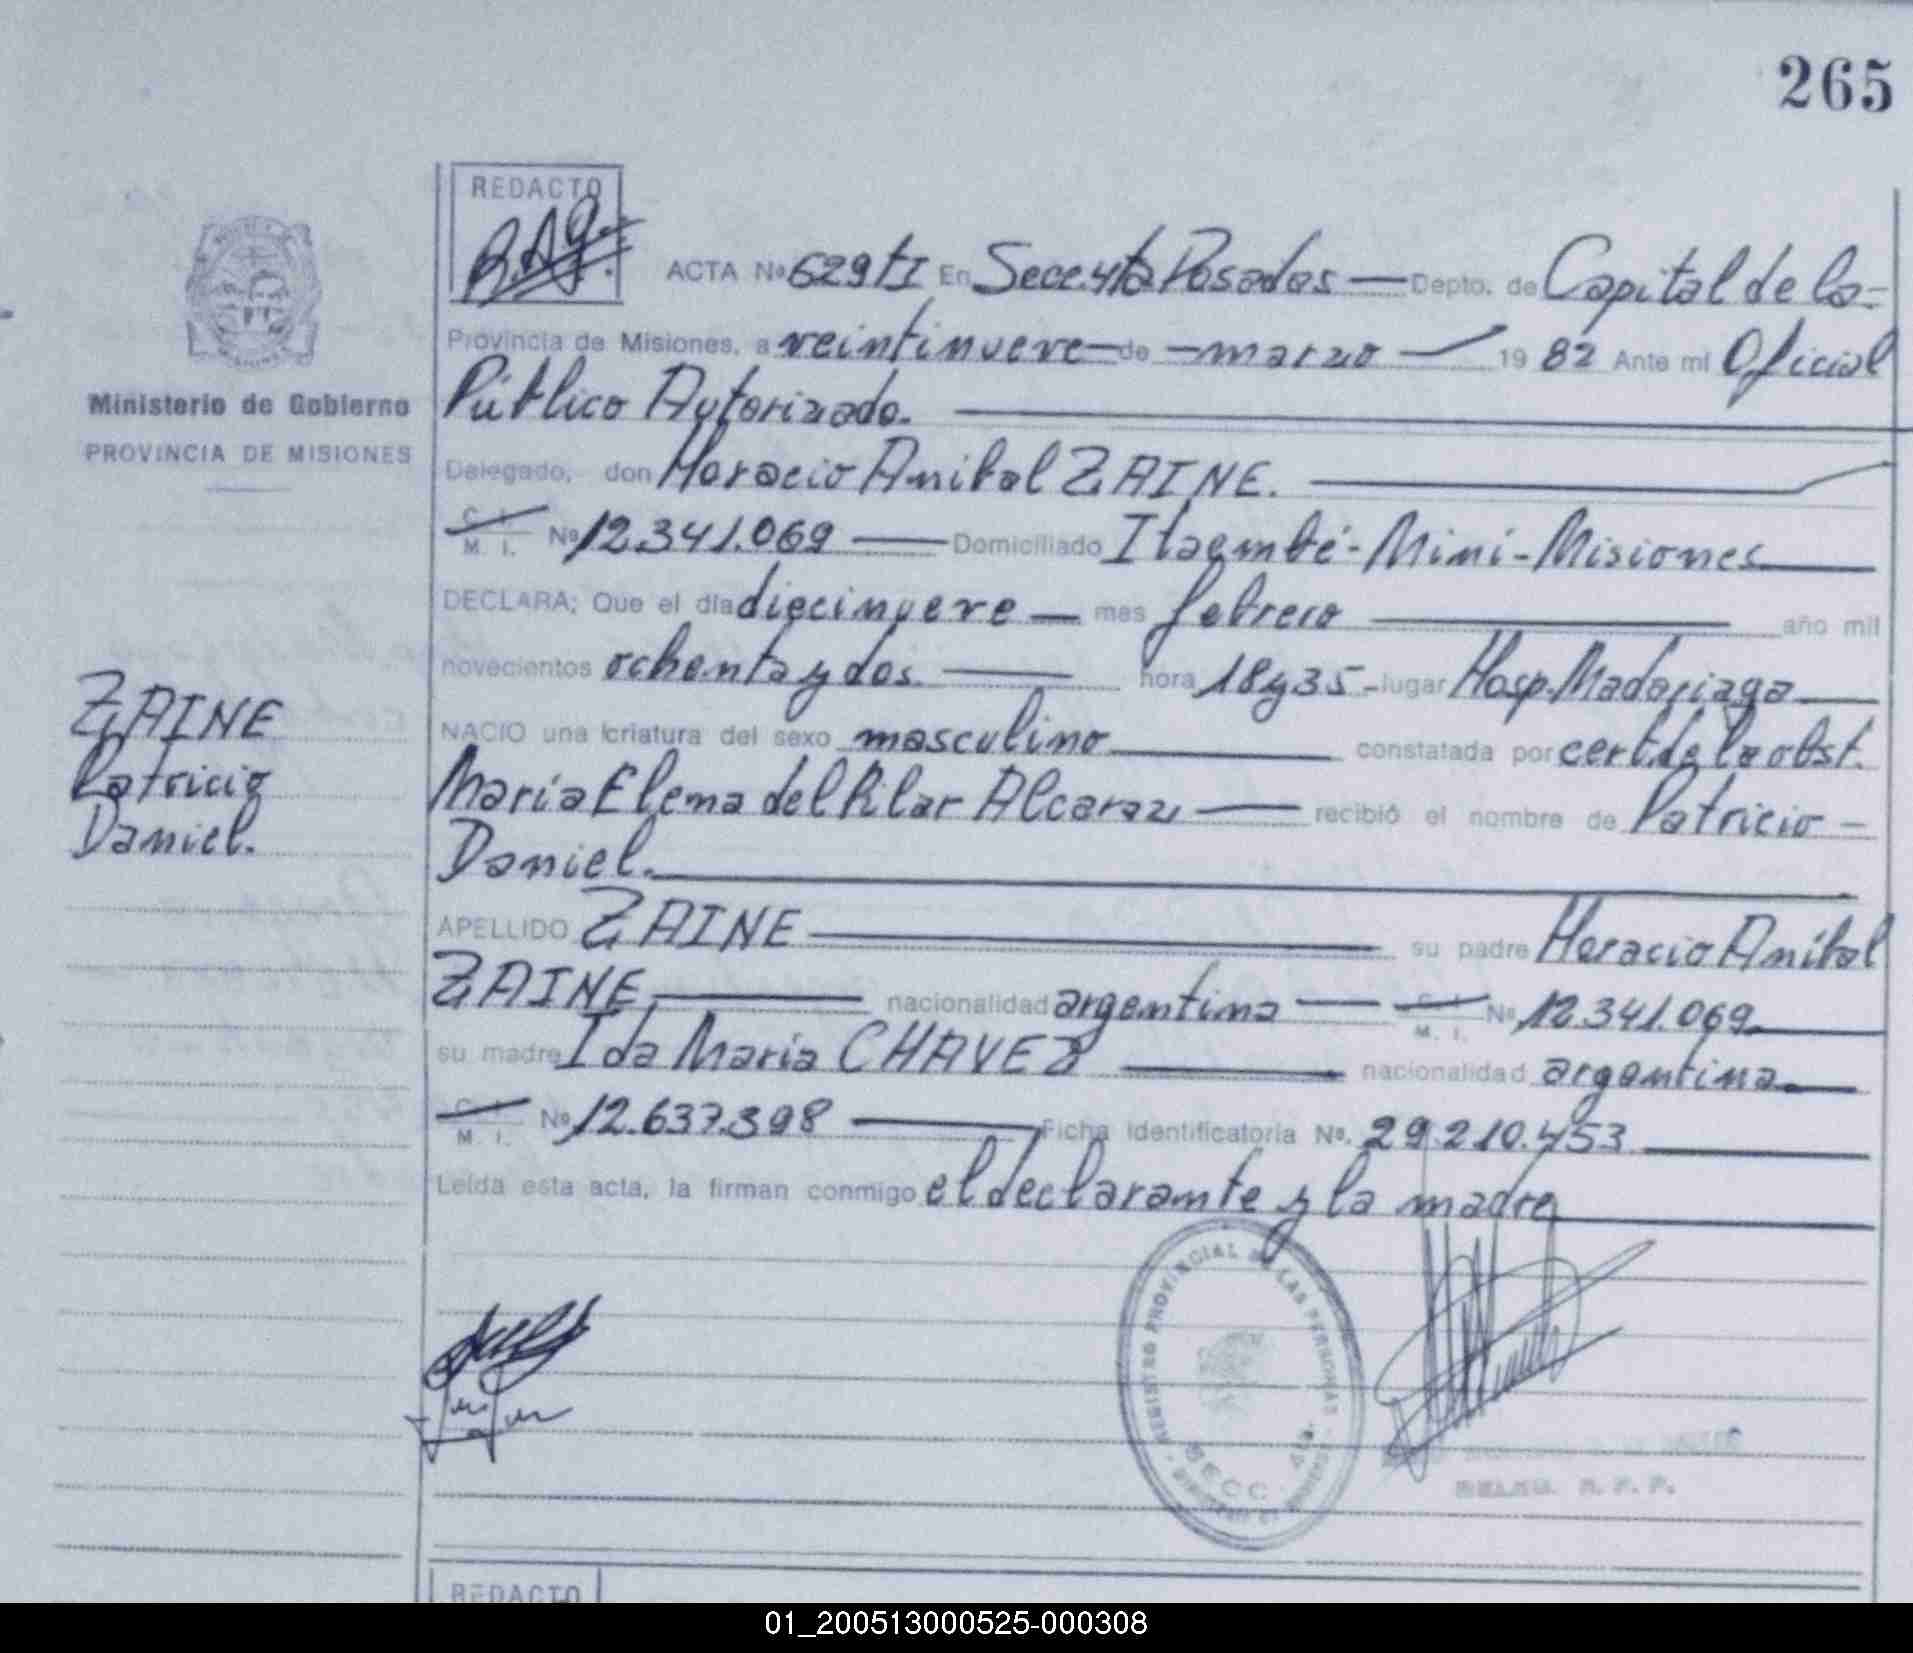 265
REDACTO
ACTA Nº 629 tI En Secc. 4ta Posadas — Depto. de Capital de la-
Provincia de Misiones, a veintinueve — de — marzo — 19 82 Ante mi Oficial
Ministerio de Gobierno
Público Autorizado.
PROVINCIA DE MISIONES
Delegado, don Horacio Anibal ZAINE.
C. I.
M. I. Nº 12.341.069 — Domiciliado Itaembé-Miní-Misiones
DECLARA; Que el día diecinueve — mes febrero — año mil
novecientos ochenta y dos. — hora 18 y 35 - lugar Hosp. Madariaga
ZAINE
Patricio
Daniel.
NACIO una criatura del sexo masculino — constatada por cert. de la obst.
María Elena del Pilar Alcaraz — recibió el nombre de Patricio -
Daniel.
APELLIDO ZAINE — su padre Horacio Aníbal
ZAINE — nacionalidad argentina — C. I.
M. I. Nº 12.341.069
su madre Ida María CHAVEZ — nacionalidad argentina
C. I.
M. I. Nº 12.637.398 — Ficha identificatoria Nº. 29.210.453
Leída esta acta, la firman conmigo el declarante y la madre
REGISTRO PROVINCIAL DE LAS PERSONAS
SECC. 4ta.
REDACTO
01_200513000525-000308